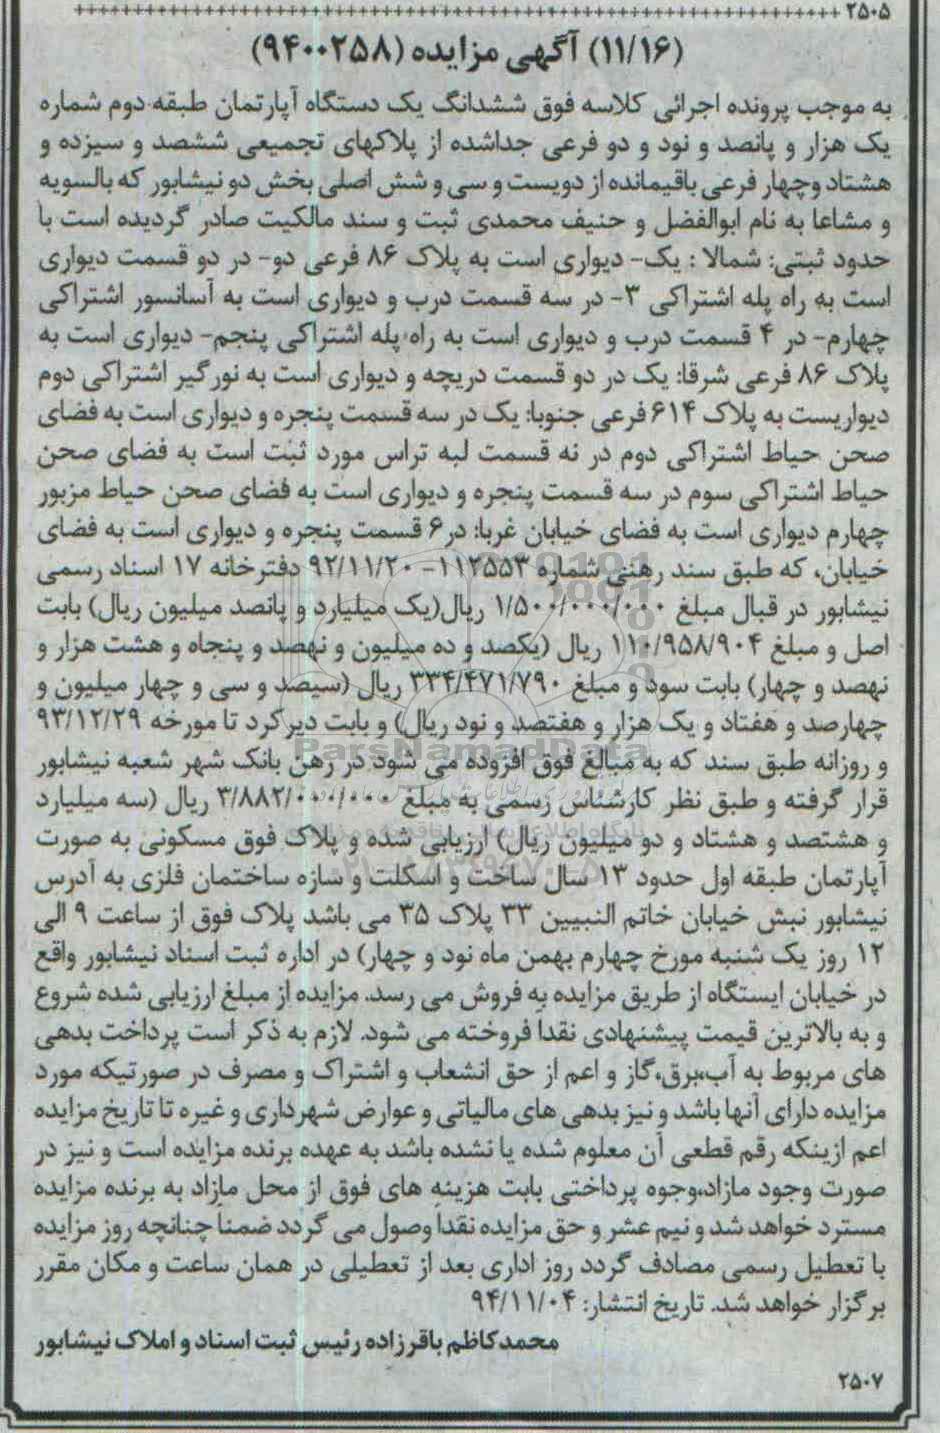 ۲۵۰۵ ++++++++++++++++++++++++++++++++++++++++++++++++++++++++
(۱۱/۱۶) آگهی مزایده (۹۴۰۰۲۵۸)
به موجب پرونده اجرائی کلاسه فوق ششدانگ یک دستگاه آپارتمان طبقه دوم شماره
یک هزار و پانصد و نود و دو فرعی جداشده از پلاکهای تجمیعی ششصد و سیزده و
هشتاد وچهار فرعی باقیمانده از دویست و سی و شش اصلی بخش دو نیشابور که بالسویه
و مشاعا به نام ابوالفضل و حنیف محمدی ثبت و سند مالکیت صادر گردیده است با
حدود ثبتی: شمالا : یک- دیواری است به پلاک ۸۶ فرعی دو- در دو قسمت دیواری
است به راه پله اشتراکی ۳- در سه قسمت درب و دیواری است به آسانسور اشتراکی
چهارم- در ۴ قسمت درب و دیواری است به راه پله اشتراکی پنجم- دیواری است به
پلاک ۸۶ فرعی شرقا: یک در دو قسمت دریچه و دیواری است به نورگیر اشتراکی دوم
دیواریست به پلاک ۶۱۴ فرعی جنوبا: یک در سه قسمت پنجره و دیواری است به فضای
صحن حیاط اشتراکی دوم در نه قسمت لبه تراس مورد ثبت است به فضای صحن
حیاط اشتراکی سوم در سه قسمت پنجره و دیواری است به فضای صحن حیاط مزبور
چهارم دیواری است به فضای خیابان غربا: در۶ قسمت پنجره و دیواری است به فضای
خیابان، که طبق سند رهنی شماره ۱۱۲۵۵۳- ۹۲/۱۱/۲۰ دفترخانه ۱۷ اسناد رسمی
نیشابور در قبال مبلغ ۱/۵۰۰/۰۰۰/۰۰۰ ریال(یک میلیارد و پانصد میلیون ریال) بابت
اصل و مبلغ ۱۱۰/۹۵۸/۹۰۴ ریال (یکصد و ده میلیون و نهصد و پنجاه و هشت هزار و
نهصد و چهار) بابت سود و مبلغ ۳۳۴/۴۷۱/۷۹۰ ریال (سیصد و سی و چهار میلیون و
چهارصد و هفتاد و یک هزار و هفتصد و نود ریال) و بابت دیرکرد تا مورخه ۹۳/۱۲/۲۹
و روزانه طبق سند که به مبالغ فوق افزوده می شود در رهن بانک شهر شعبه نیشابور
قرار گرفته و طبق نظر کارشناس رسمی به مبلغ ۳/۸۸۲/۰۰۰/۰۰۰ ریال (سه میلیارد
و هشتصد و هشتاد و دو میلیون ریال) ارزیابی شده و پلاک فوق مسکونی به صورت
آپارتمان طبقه اول حدود ۱۳ سال ساخت و اسکلت و سازه ساختمان فلزی به آدرس
نیشابور نبش خیابان خاتم النبیین ۳۳ پلاک ۳۵ می باشد پلاک فوق از ساعت ۹ الی
۱۲ روز یک شنبه مورخ چهارم بهمن ماه نود و چهار) در اداره ثبت اسناد نیشابور واقع
در خیابان ایستگاه از طریق مزایده به فروش می رسد. مزایده از مبلغ ارزیابی شده شروع
و به بالاترین قیمت پیشنهادی نقدا فروخته می شود. لازم به ذکر است پرداخت بدهی
های مربوط به آب،برق،گاز و اعم از حق انشعاب و اشتراک و مصرف در صورتیکه مورد
مزایده دارای آنها باشد و نیز بدهی های مالیاتی و عوارض شهرداری و غیره تا تاریخ مزایده
اعم ازینکه رقم قطعی آن معلوم شده یا نشده باشد به عهده برنده مزایده است و نیز در
صورت وجود مازاد،وجوه پرداختی بابت هزینه های فوق از محل مازاد به برنده مزایده
مسترد خواهد شد و نیم عشر و حق مزایده نقدا وصول می گردد ضمنا چنانچه روز مزایده
با تعطیل رسمی مصادف گردد روز اداری بعد از تعطیلی در همان ساعت و مکان مقرر
برگزار خواهد شد. تاریخ انتشار: ۹۴/۱۱/۰۴
محمدکاظم باقرزاده رئیس ثبت اسناد و املاک نیشابور
۲۵۰۷
ParsNamadData